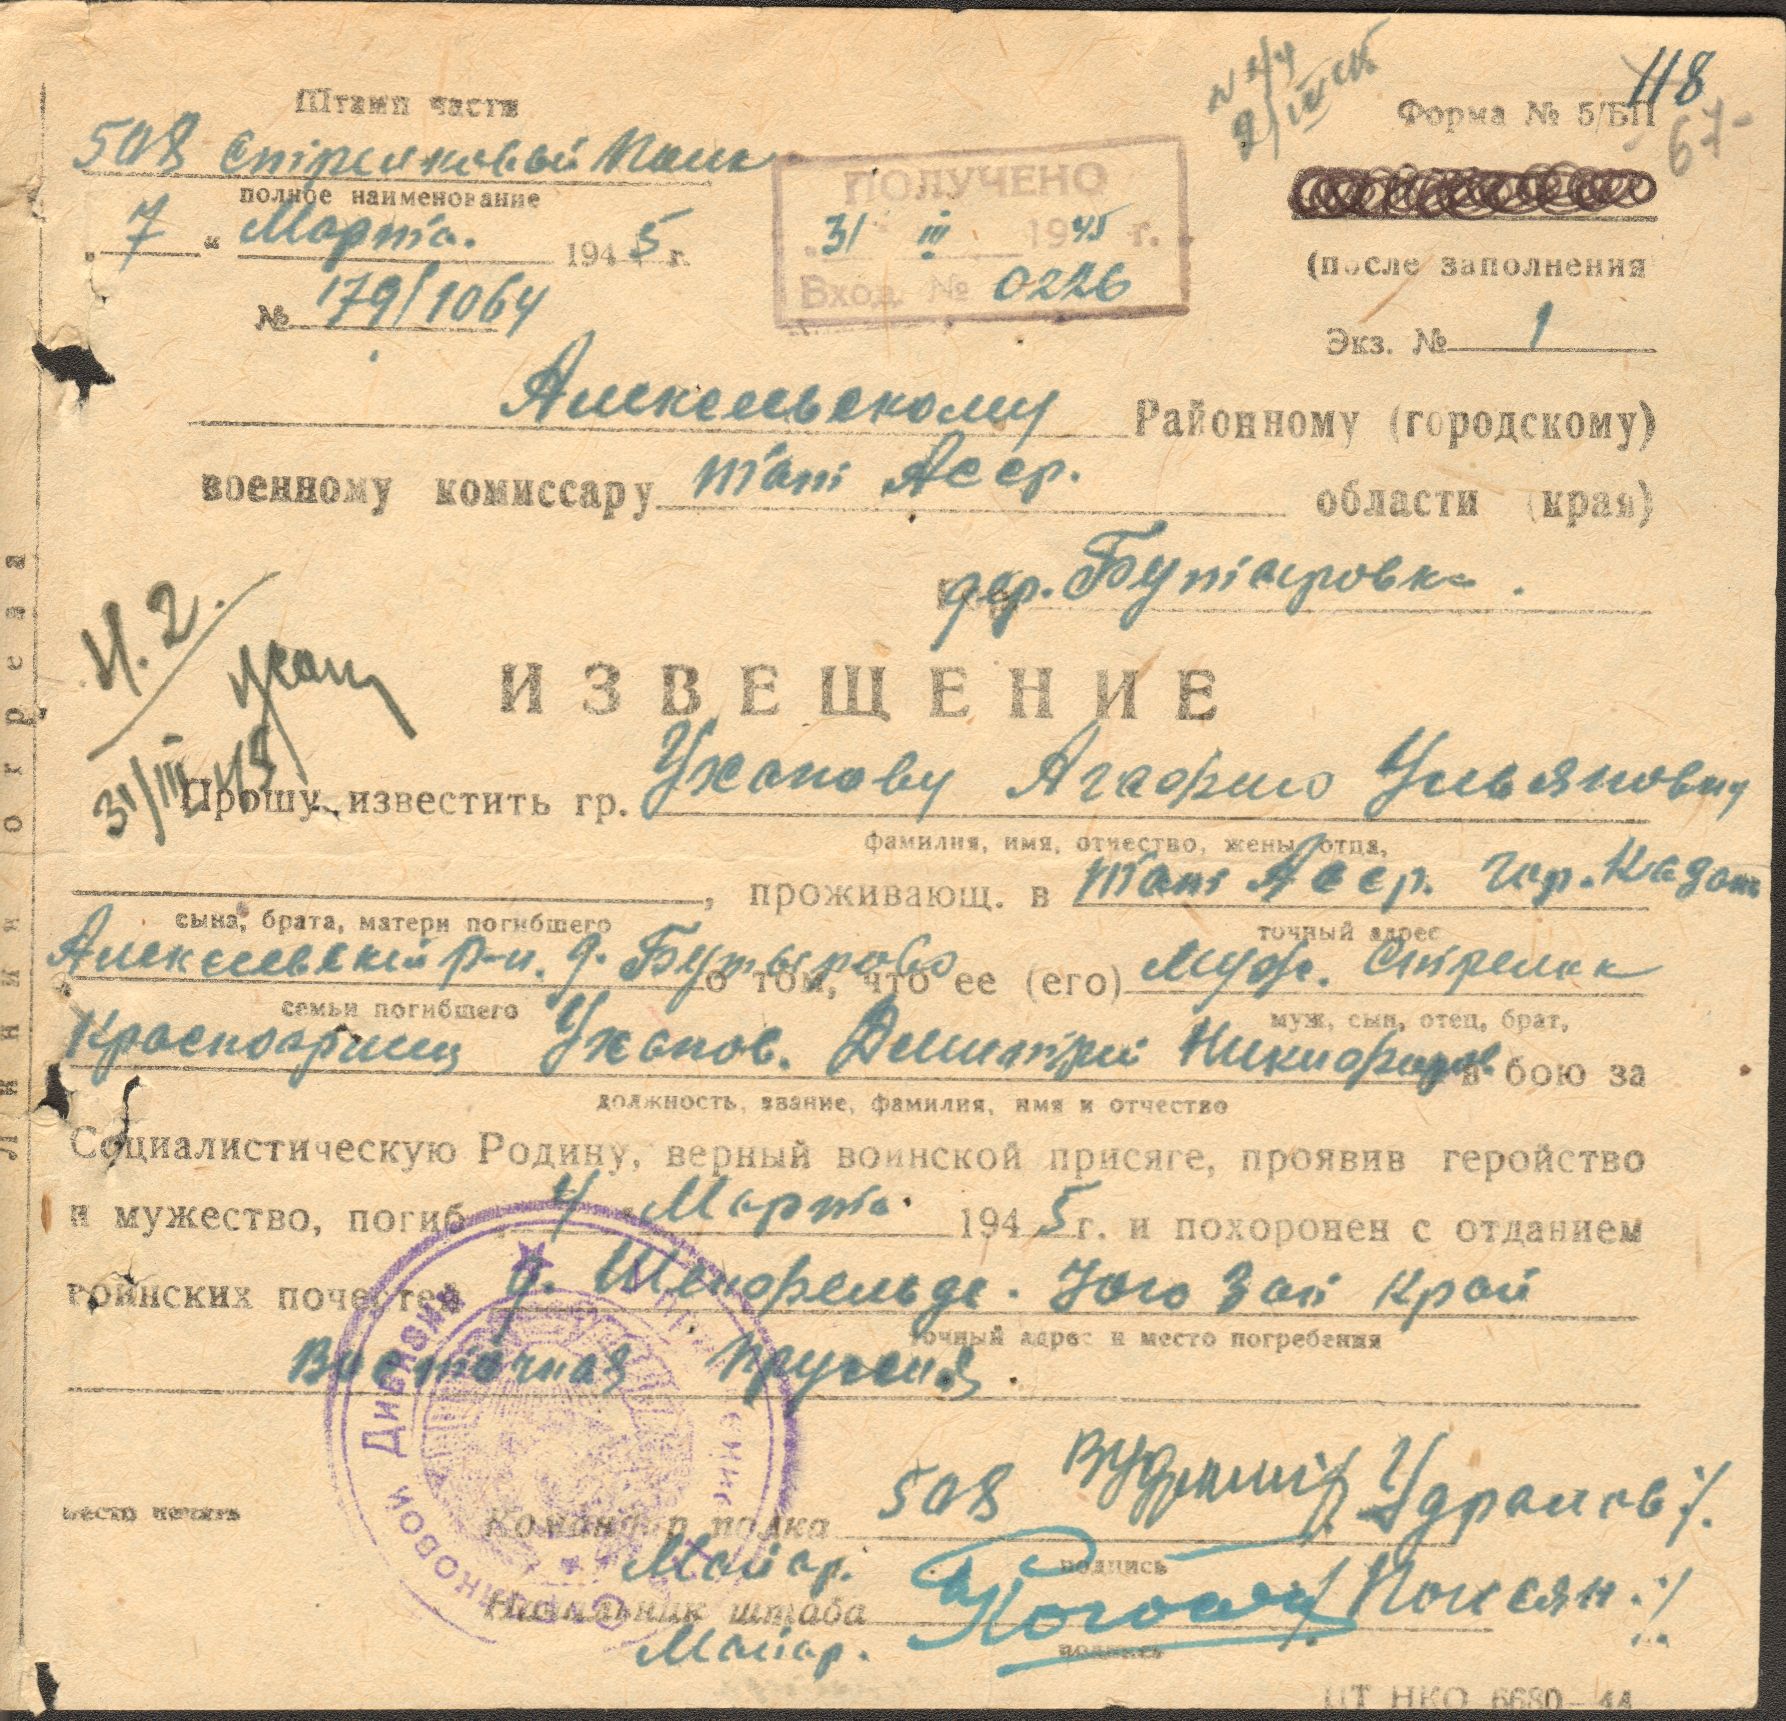 118
Форма № 5/БП
67-
Штамп части
508 Стрелковый Полк
полное наименование
„7“ Марта. 1945 г.
№ 179/1064
ПОЛУЧЕНО
„31“ III 1945 г.
Вход. № 0226
(после заполнения
Экз. № 1
Алексеевскому Районному (городскому)
военному комиссару Тат Асср. области (края)
дер. Бутыровка.
И З В Е Щ Е Н И Е
Н. 2.
31/III 45
Прошу известить гр. Уханову Агафию Ульяновну
фамилия, имя, отчество, жены, отца,
, проживающ. в Тат Асср. гор. Казань
сына, брата, матери погибшего
точный адрес
Алексеевский р-н. д. Бутырово о том, что ее (его) муж. Стрелок
семьи погибшего
муж, сын, отец, брат,
Красноармеец Уханов. Дмитрий Никифоров в бою за
должность, звание, фамилия, имя и отчество
Социалистическую Родину, верный воинской присяге, проявив геройство
и мужество, погиб „4“ Марта 1945 г. и похоронен с отданием
воинских почестей д. Шенфельде. Юго Зап Край
точный адрес и место погребения
Восточная Пруссия.
место печати
Стрелковой Дивизии
Командир полка 508
Майор.
подпись
Начальник штаба
Майор.
подпись
ЦТ НКО 6680—44
Линия отреза